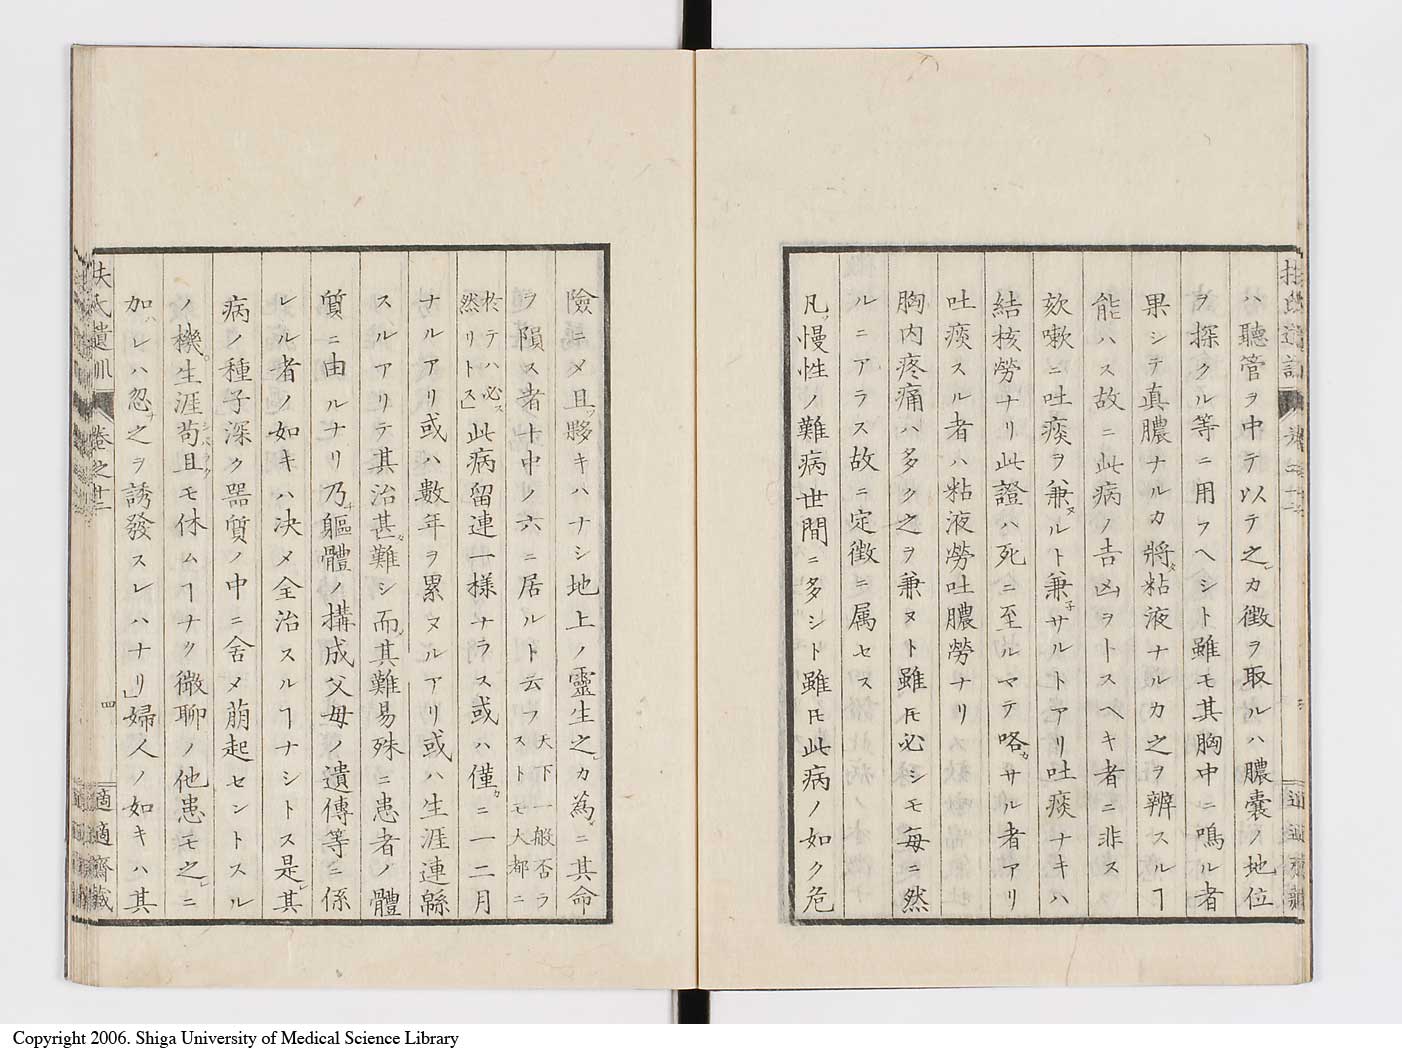 ハ聴管ヲ中テ以テ之カ徴ヲ取ルハ膿嚢ノ地位
ヲ探クル等ニ用フヘシト雖モ其胸中ニ鳴ル者
果シテ真膿ナルカ将タ粘液ナルカ之ヲ辨スルヿ
能ハス故ニ此病ノ吉凶ヲトスヘキ者ニ非ス
欬嗽ニ吐痰ヲ兼ヌルト兼子サルトアリ吐痰ナキハ
結核勞ナリ此證ハ死ニ至ルマテ咯カサル者アリ
吐痰スル者ハ粘液勞吐膿勞ナリ
胸内疼痛ハ多ク之ヲ兼ヌト雖𪜈必シモ毎ニ然
ルニアラス故ニ定徴ニ属セス
凡慢性ノ難病世間ニ多シト雖𪜈此病ノ如ク危
險ニメ且ツ夥キハナシ地上ノ靈生之カ為ニ其命
ヲ隕ス者十中ノ六ニ居ルト云フ天下一般否ラ
ストモ大都ニ
於テハ必ス
然リトス」此病留連一様ナラス或ハ僅カニ一二月
ナルアリ或ハ數年ヲ累ヌルアリ或ハ生涯連緜
スルアリテ其治甚タ難シ而其難易殊ニ患者ノ體
質ニ由ルナリ乃チ軀體ノ搆成父母ノ遺傳等ニ係
レル者ノ如キハ决メ全治スルヿナシトス是レ其
病ノ種子深ク器質ノ中ニ舍メ萠起セントスル
ノ機生涯苟且モ休ムヿナク微聊ノ他患モ之レニ
加ハレハ忽チ之ヲ誘發スレハナリ」婦人ノ如キハ其
扶氏遺訓
卷之廿二
四
適適齋藏